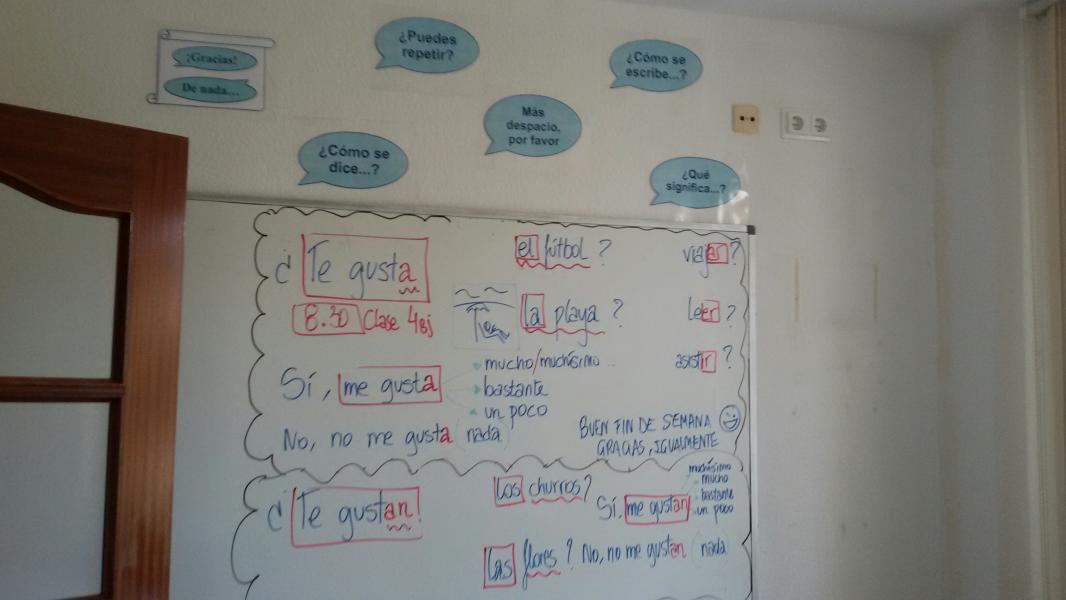 ¡Gracias!
De nada...
¿Puedes
repetir?
¿Cómo se
escribe...?
Más
despacio,
por favor
¿Cómo se
dice...?
¿Qué
significa...?
¿ Te gusta
el fútbol ?
viajar ?
8.30 Clase 4Bj
la playa ?
leer ?
asistir ?
Sí, me gusta
mucho/muchísimo ...
bastante
un poco
No, no me gusta (nada)
BUEN FIN DE SEMANA
GRACIAS, IGUALMENTE
¿ Te gustan!
Los churros?
Sí, me gustan
muchísimo
mucho
bastante
un poco
Las flores ? No, no me gustan (nada)